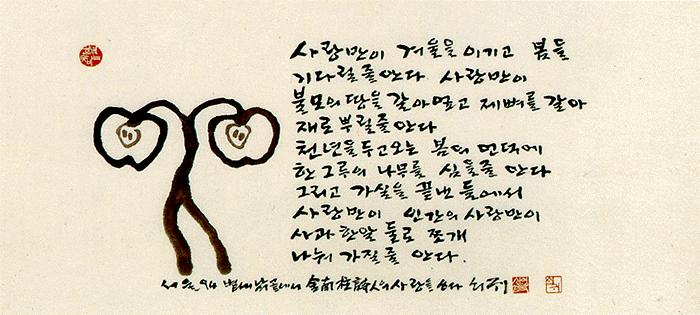 사랑만이 겨울을 이기고 봄을
기다릴줄 안다 사랑만이
불모의 땅을 갈아엎고 제뼈를 갈아
재로 뿌릴줄 안다
천년을 두고오는 봄의 언덕에
한 그루의 나무를 심을줄 안다
그리고 가실을 끝낸 들에서
사랑만이 인간의 사랑만이
사과 한알 둘로 쪼개
나눠 가질 줄 안다.
金南柱詩人의 사랑을 쓰다